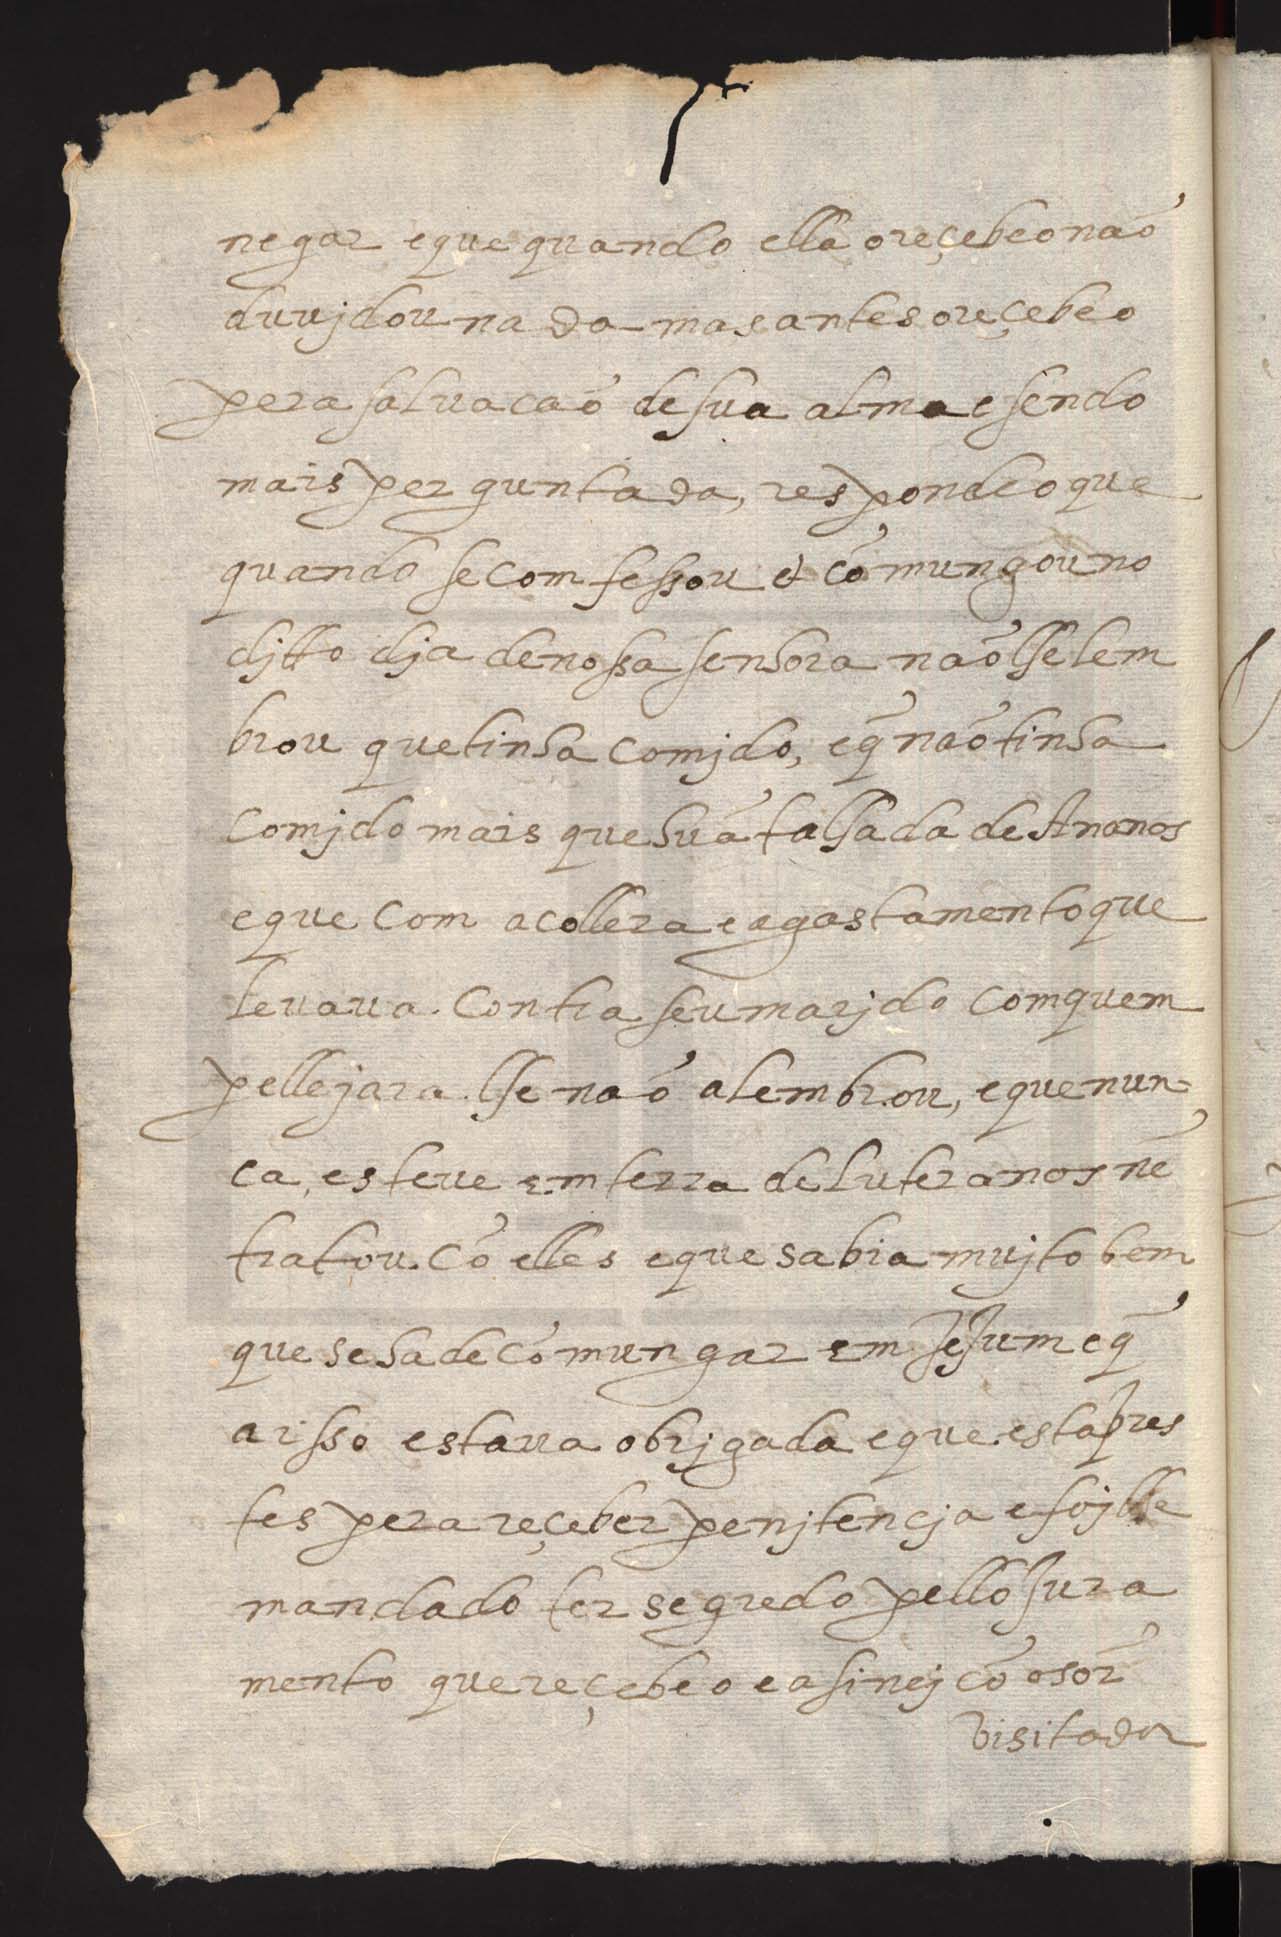 negar e que quando ella o reçebeo naõ
duujdou na da mas antes o reçebeo
pera saluacaõ de sua alma e sendo
mais per gunta da, respondeo que
quando se com fessou & cõmungou no
djtto dja de nossa senhora naõ lhe lem
brou que tinha comjdo, e q̃ naõ tinha
comjdo mais que huã talhada de Ananos
e que com a collera e agastamento que
leuaua. Contra seu marjdo com quem
pellejara. lhe naõ a lembrou, e que nun=
ca, esteue em terra de luteranos nẽ
tratou. Cõ elles e que sabia mujto bem
que se ha de cõmungar em JeJum e q̃
a isso estaua obrigada e que. esta pres
tes pera reçeber penjtencja e foj lhe
mandado ter segredo pello Jura
mento que reçebeo e asinej cõ o sor̃
visitador